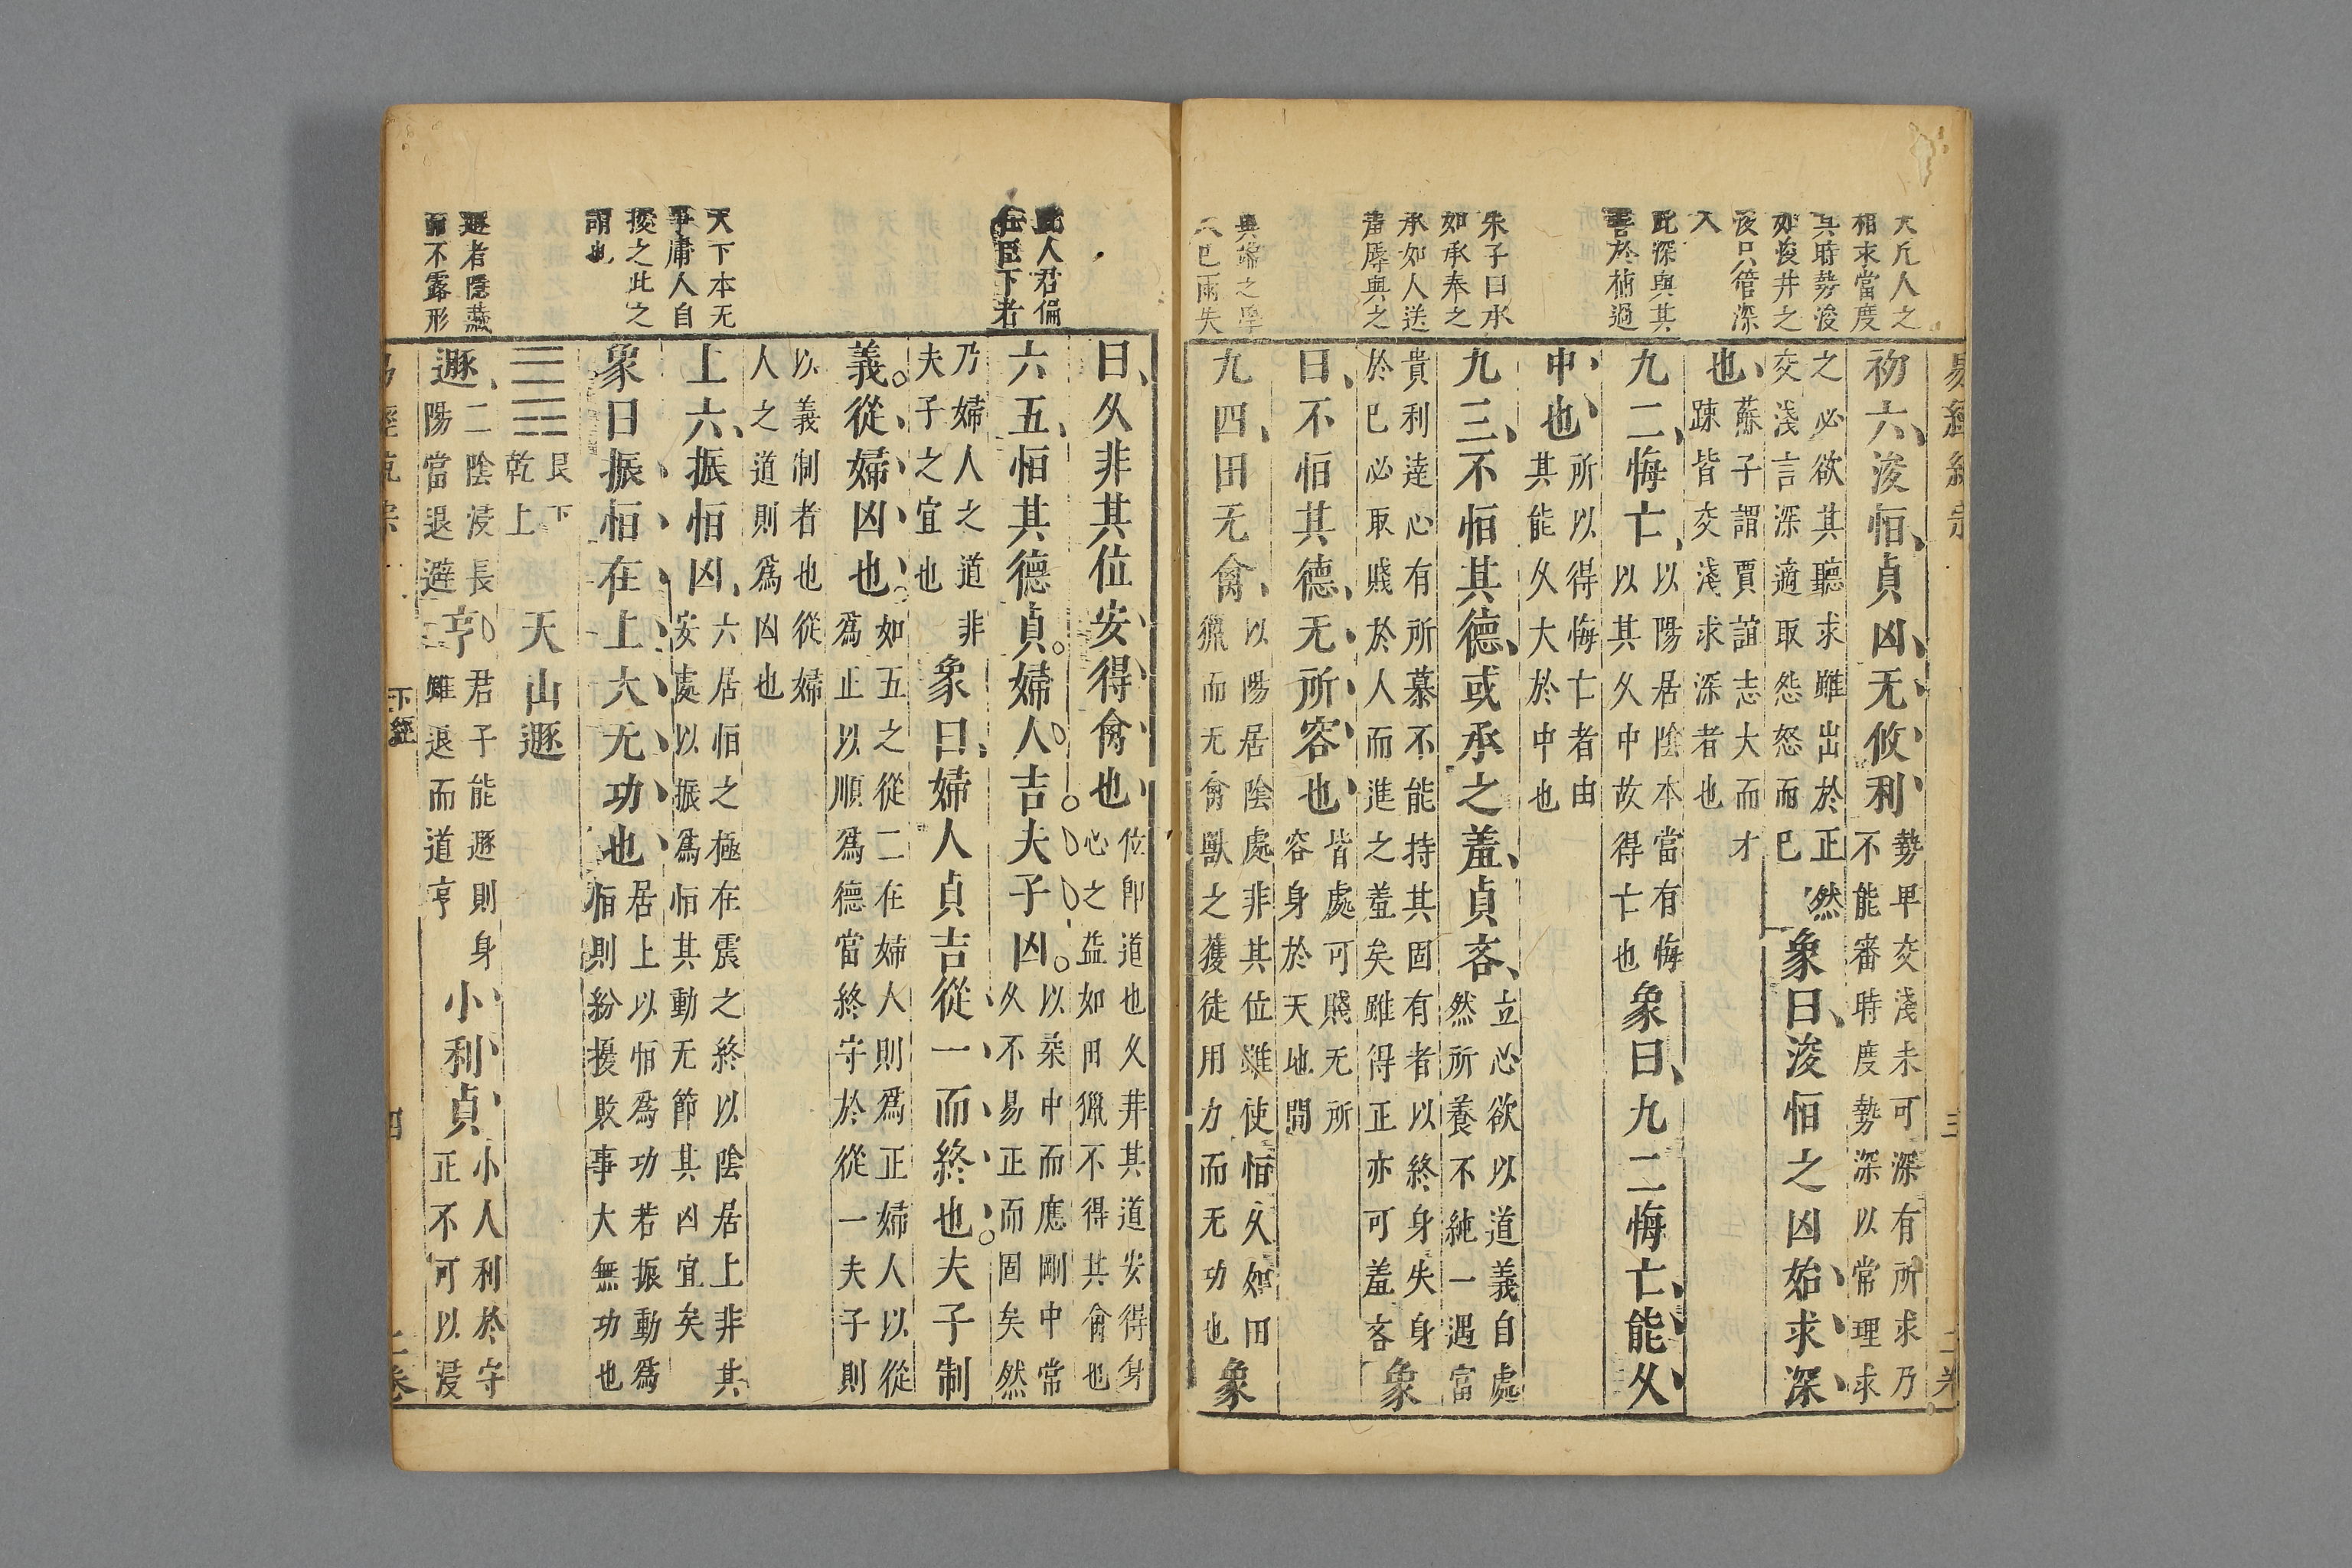 大凡人之
相求當度
其時勢浚
如浚井之
後只管深
入
此深與其
害於柄過
朱子曰承
如承奉之
承如人送
羞辱與之
異端之學
初六浚恒貞凶无攸利
勢卑交淺未可深有所求乃
不能審時度勢深以常理求
之必欲其聽求雖出於正然
交淺言深適取怨怒而已
象曰浚恒之凶始求深
也
蘇子謂賈誼志大而才
疎皆交淺求深者也
九二悔亡
以陽居陰本當有悔
以其久中故得亡也
象曰九二悔亡能久
中也
所以得悔亡者由
其能久大於中也
九三不恒其德或承之羞貞吝
立心欲以道義自處
然所養不純一遇富
貴利達心有所慕不能持其固有者以終身失身
於已必取賤於人而進之羞矣雖得正亦可羞吝
象
曰不恒其德无所容也
皆處可賤无所
容身於天地間
九四田无禽
以陽居陰處非其位雖使恒久如田
獵而无禽獸之獲徒用力而无功也
象
此人君偏
在臣下者
天下本无
事庸人自
擾之此之
謂也
遯者隱蔽
而不露形
曰久非其位安得禽也
位即道也久井其道安得身
心之益如田獵不得其禽也
六五恒其德貞婦人吉夫子凶
以柔中而應剛中常
久不易正而固矣然
乃婦人之道非
夫子之宜也
象曰婦人貞吉從一而終也夫子制
義從婦凶也
如五之從二在婦人則爲正婦人以從
爲正以順爲德當終守於從一夫子則
以義制者也從婦
人之道則爲凶也
上六振恒凶
六居恒之極在震之終以陰居上非其
安處以振爲恒其動无節其凶宜矣
象曰振恒在上大无功也
居上以恒爲功若振動爲
恒則紛擾敗事大無功也
艮下
乾上
天山遯
遯
二陰浸長
陽當退避
亨
君子能遯則身
雖退而道亨
小利貞
小人利於守
正不可以浸
下經
四